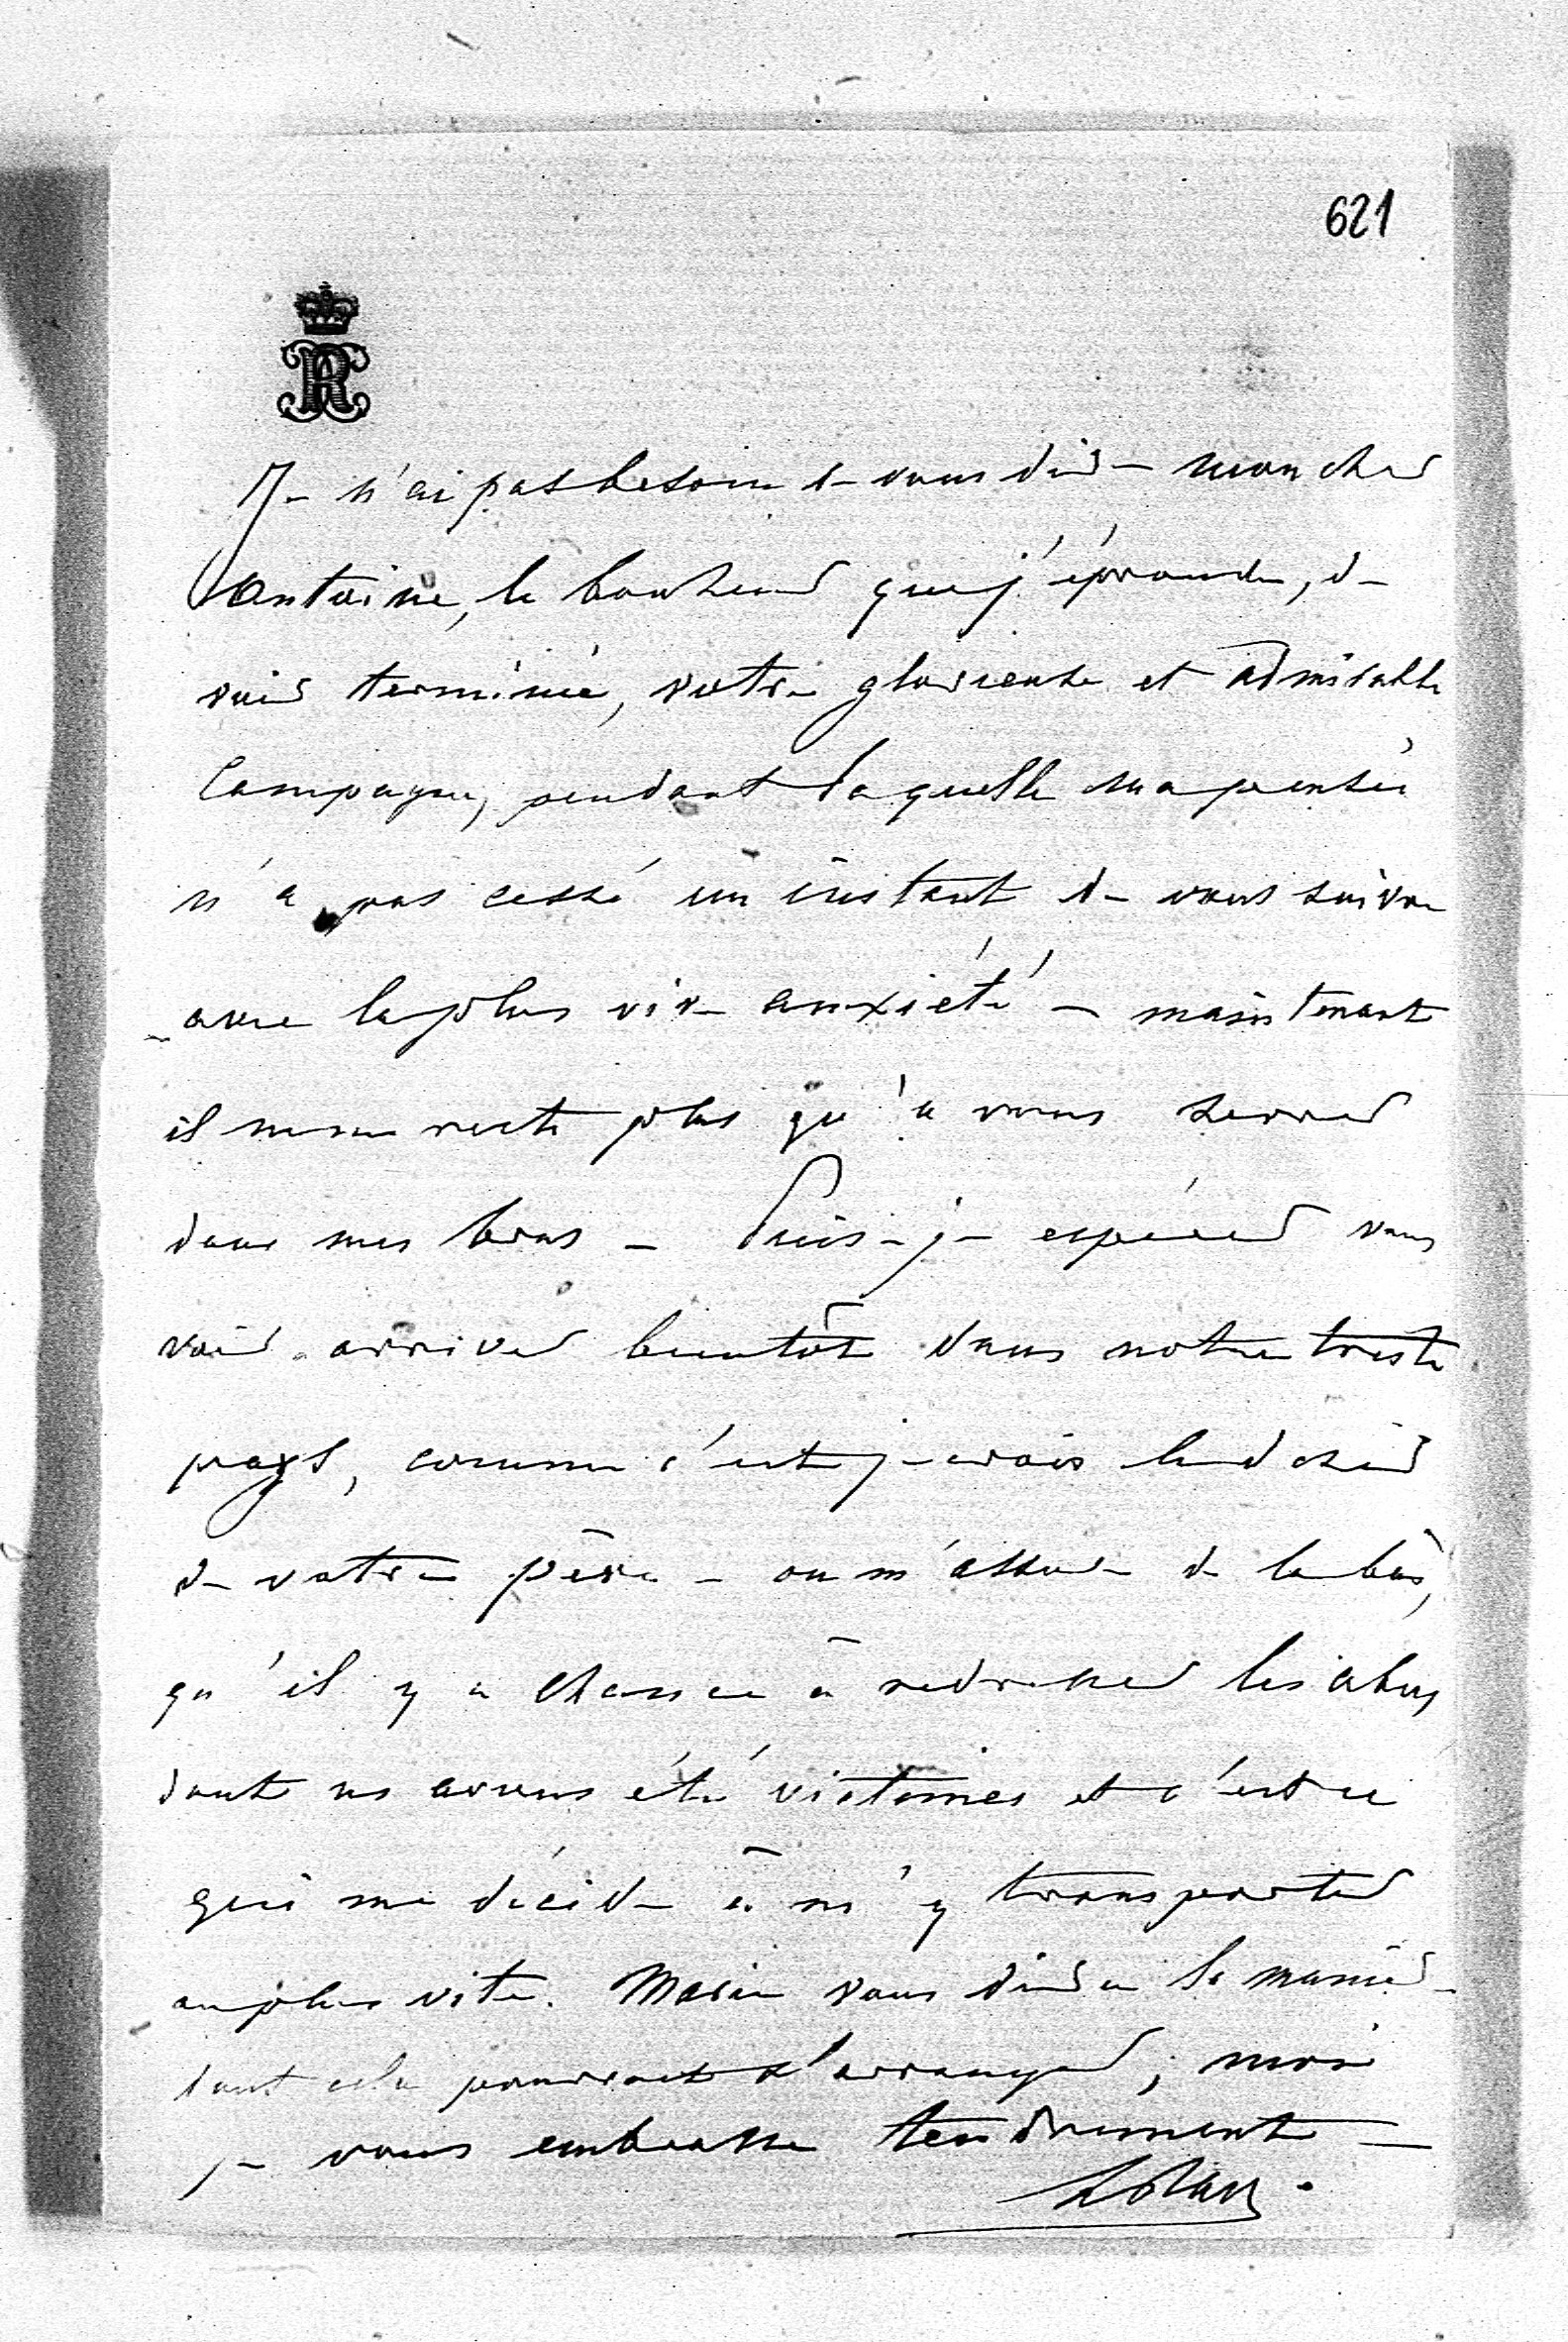 621
Je n'ai pas besoin de vous dire mon cher
Antoine, le bonheur que j'éprouve, de
voir terminée, votre glorieuse et admirable
Campagne, pendant laquelle ma pensée
n'a pas cessé un instant de vous suivre
avec la plus vive anxiété — maintenant
il ne me reste plus qu'à vous serrer
dans mes bras — Puis-je espérer vous
voir arriver bientôt dans notre triste
pays, comme c'est je crois le désir
de votre père — on m'assure de là bas,
qu'il y a chance à redresser les abus
dont ns avons été victimes et c'est ce
qui me décide à m'y transporter
au plus vite. Marie vous dira la manière
dont cela pourrait s'arranger; moi
je vous embrasse tendrement —